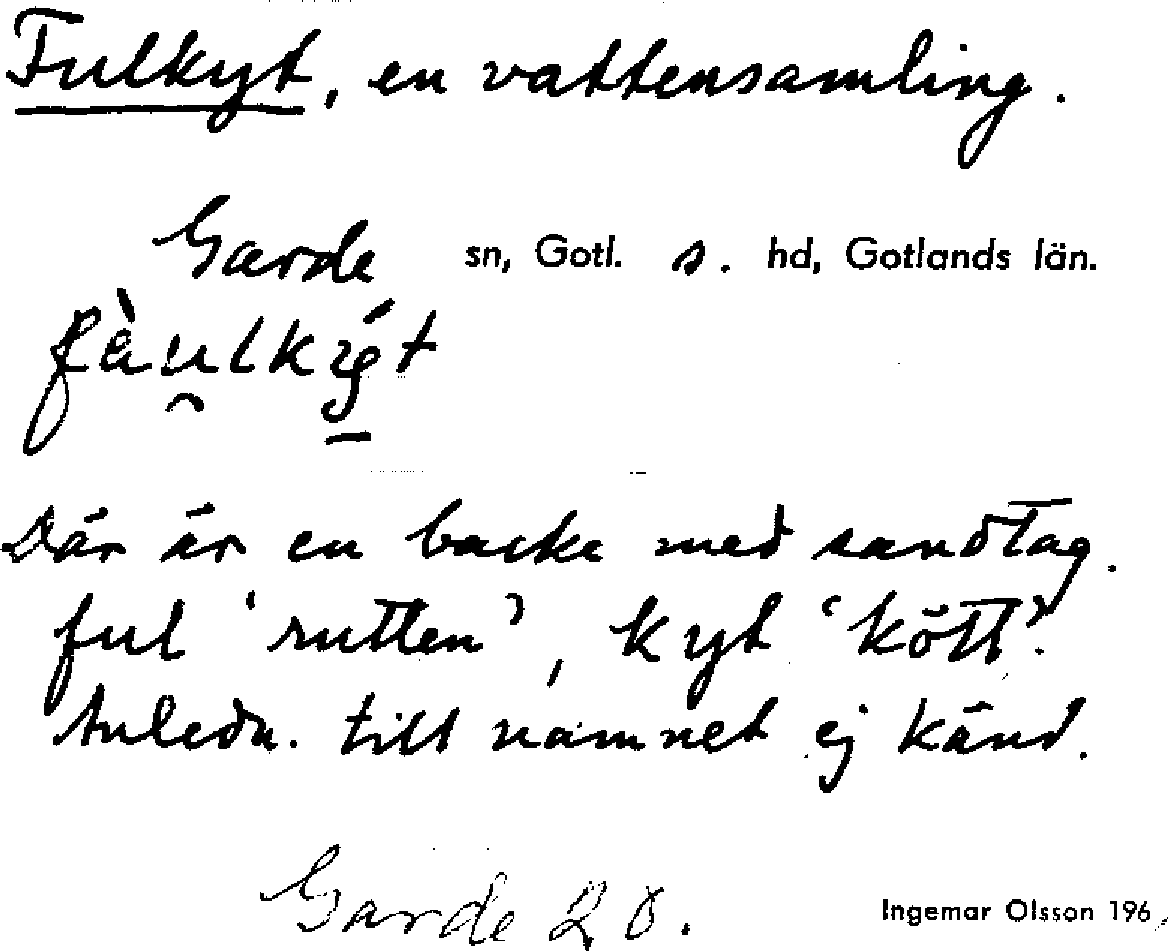 Fulkyt, en vattensamling.
Garde sn, Gotl. s. hd, Gotlands län.
fàu̯lkýt
Där är en backe med sandtag.
ful 'rutten', kyt 'kött'.
Anledn. till namnet ej känd.
Garde
Ingemar Olsson 196